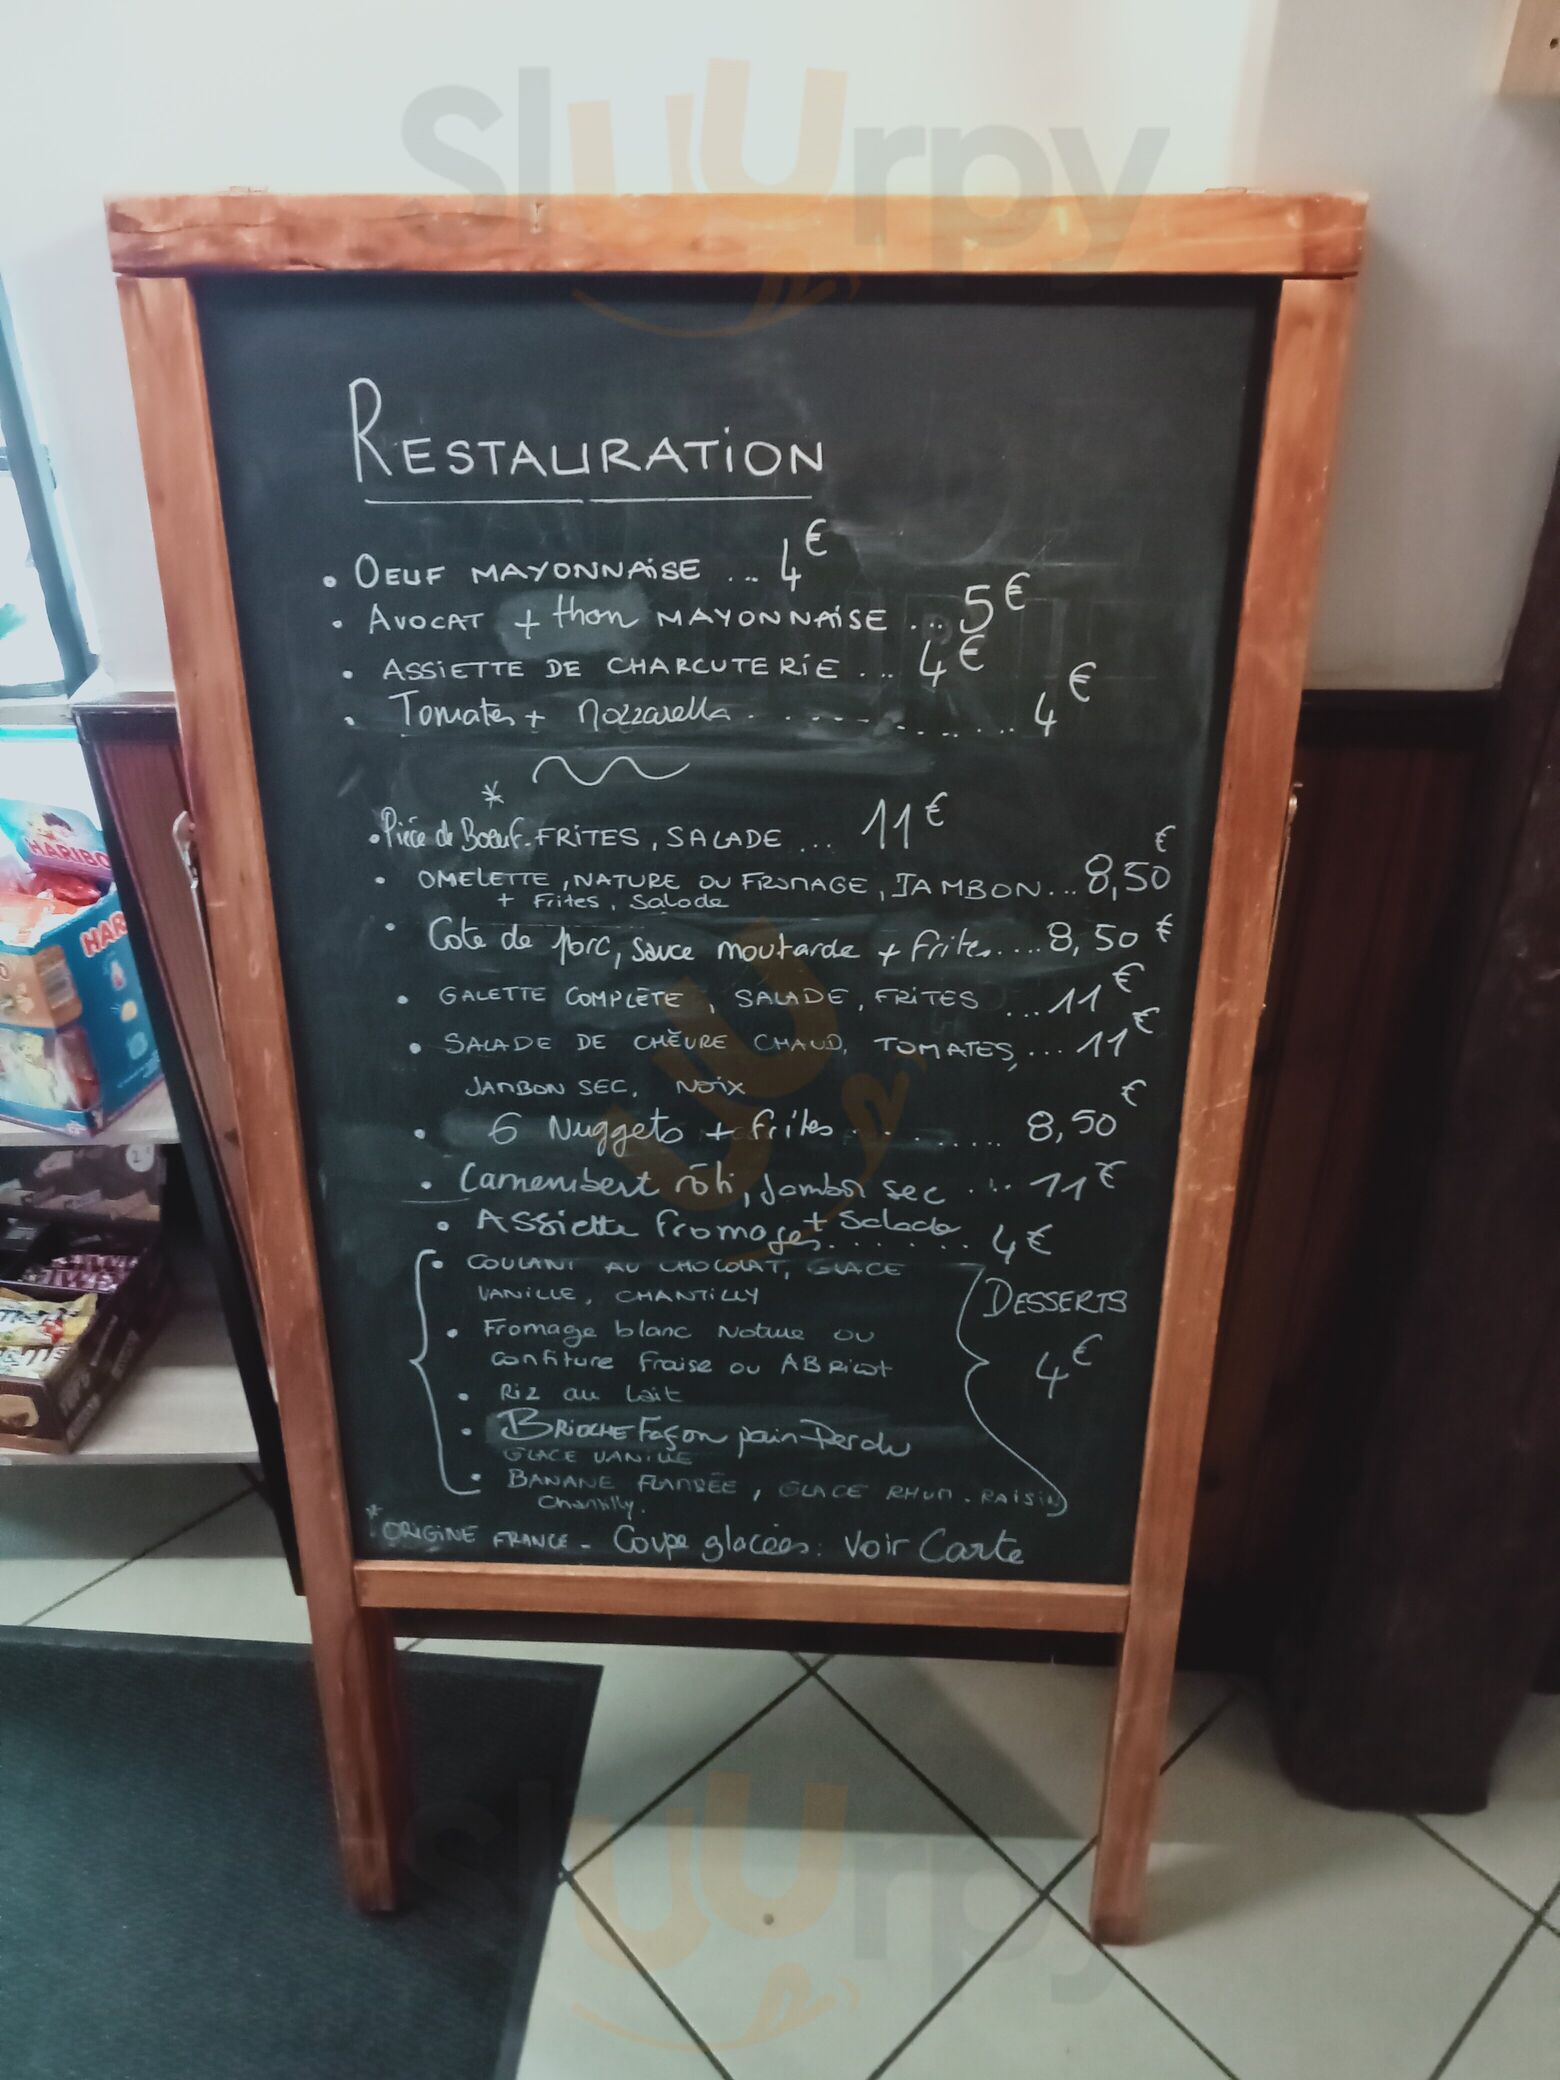 Sluurpy
RESTAURATION
• OEUF MAYONNAISE ... 4€
• AVOCAT + thon MAYONNAISE ... 5€
• ASSIETTE DE CHARCUTERIE ... 4€
• Tomates + Mozzarella . . . . . . . . . . 4€
*
• Pièce de Boeuf. FRITES, SALADE ... 11€
• OMELETTE, NATURE OU FROMAGE, JAMBON... 8,50€
+ Frites, Salade
• Cote de porc, sauce moutarde + frites.... 8,50€
• GALETTE COMPLÈTE, SALADE, FRITES ... 11€
• SALADE DE CHÈVRE CHAUD, TOMATES, ... 11€
JAMBON SEC, NOIX
• 6 Nuggets + frites . . . . . . . . 8,50€
• Camembert rôti, Jambon sec . . . 11€
• Assiette fromages + Salade . . . . . . . 4€
• COULANT AU CHOCOLAT, GLACE
VANILLE, CHANTILLY
DESSERTS
4€
• Fromage blanc Nature ou
confiture fraise ou ABricot
• Riz au lait
• BRIOCHE Façon pain Perdu
GLACE VANILLE
• BANANE FLAMBÉE, GLACE RHUM. RAISIN
Chantilly.
* ORIGINE FRANCE - Coupe glacées: Voir Carte
HARIBO
HAR
Sluurpy